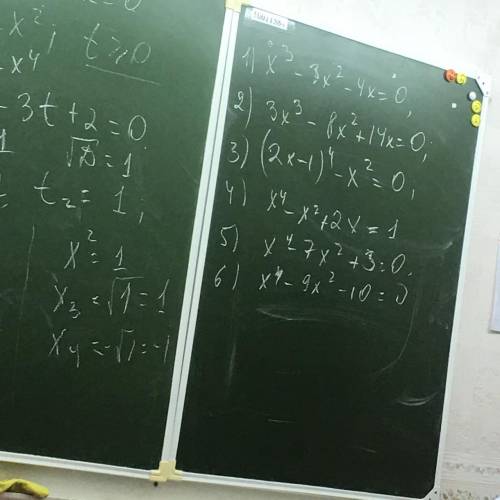 x²; t ≥ 0
x⁴
- 3t + 2 = 0
√D = 1
t₂ = 1;
x² = 1
x₃ = √1 = 1
x₄ = -√1 = -1
1) x³ - 3x² - 4x = 0;
2) 3x³ - 8x² + 14x = 0;
3) (2x-1)⁴ - x² = 0;
4) x⁴ - x² + 2x = 1
5) x⁴ - 7x² + 3 = 0;
6) x⁴ - 9x² - 10 = 0